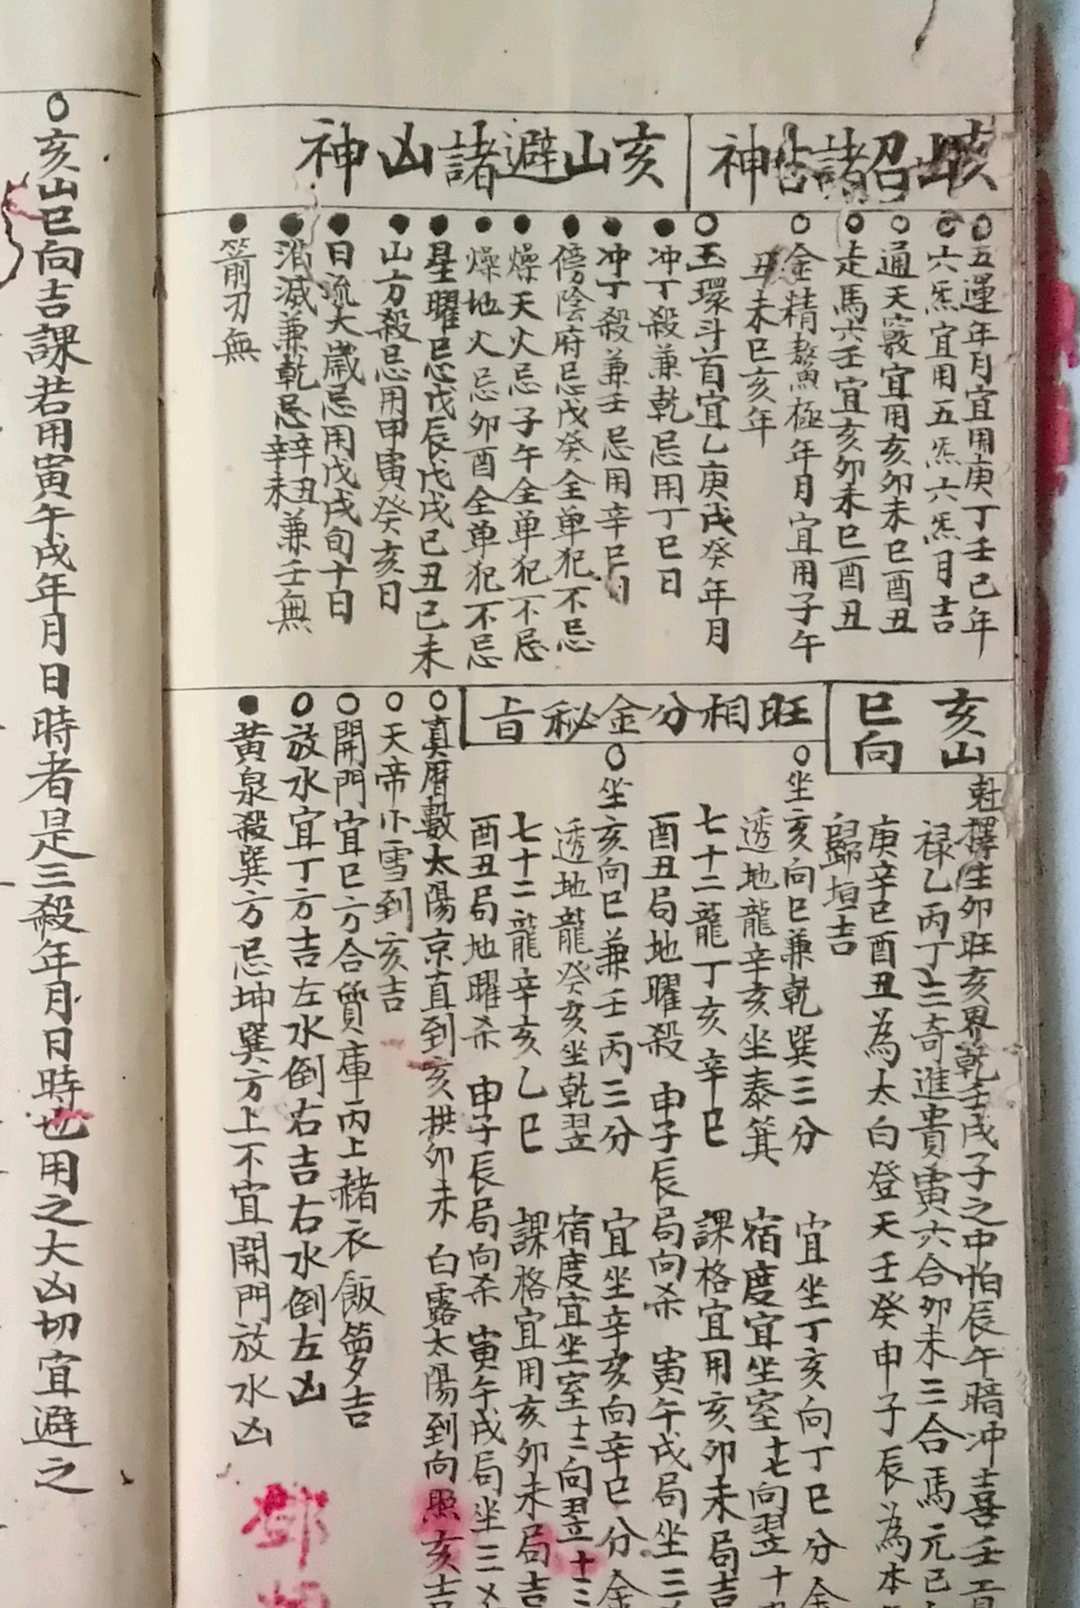 亥山召諸吉神
亥山避諸凶神
○五運年月宜用庚丁壬己年
○六炁宜用五炁六炁月吉
○通天竅宜用亥卯未巳酉丑
○走馬六壬宜亥卯未巳酉丑
○金精鰲極年月宜用子午
丑未巳亥年
○玉環斗首宜乙庚戊癸年月
●冲丁殺兼乾忌用丁巳日
●冲丁殺兼壬忌用辛巳日
●傍陰府忌戊癸全单犯不忌
●燥天火忌子午全单犯不忌
●燥地火忌卯酉全单犯不忌
●星曜忌戊辰戊戌己丑己未
●山方殺忌用甲寅癸亥日
●日流大歲忌用戊戌旬十日
●消滅兼乾忌辛丑辛未兼壬無
●箭刃無
亥山
巳向
旺相分金秘旨
魁擇生卯旺亥界乾壬戌子之中怕辰午暗冲喜壬
禄乙丙丁三奇進貴寅六合卯未三合馬元巳
庚辛巳酉丑為太白登天壬癸申子辰為本
歸垣吉
○坐亥向巳兼乾巽三分 宜坐丁亥向丁巳分金
透地龍辛亥坐泰箕 宿度宜坐室十七向翌十
七十二龍丁亥辛巳 課格宜用亥卯未局吉
酉丑局地曜殺 申子辰局向杀 寅午戌局坐三
○坐亥向巳兼壬丙三分 宜坐辛亥向辛巳分金
透地龍癸亥坐乾翌 宿度宜坐室十二向翌十三
七十二龍辛亥乙巳 課格宜用亥卯未局吉
酉丑局地曜杀 申子辰局向杀 寅午戌局坐三
○真曆數太陽京直到亥拱卯未 白露太陽到向照亥吉
○天帝小雪到亥吉
○開門宜巳方合質庫丙上赭衣飯箩吉
○放水宜丁方吉左水倒右吉右水倒左凶
●黄泉殺巽方忌坤巽方上不宜開門放水凶
鄧
○亥山巳向吉課若用寅午戌年月日時者是三殺年月日時也用之大凶切宜避之